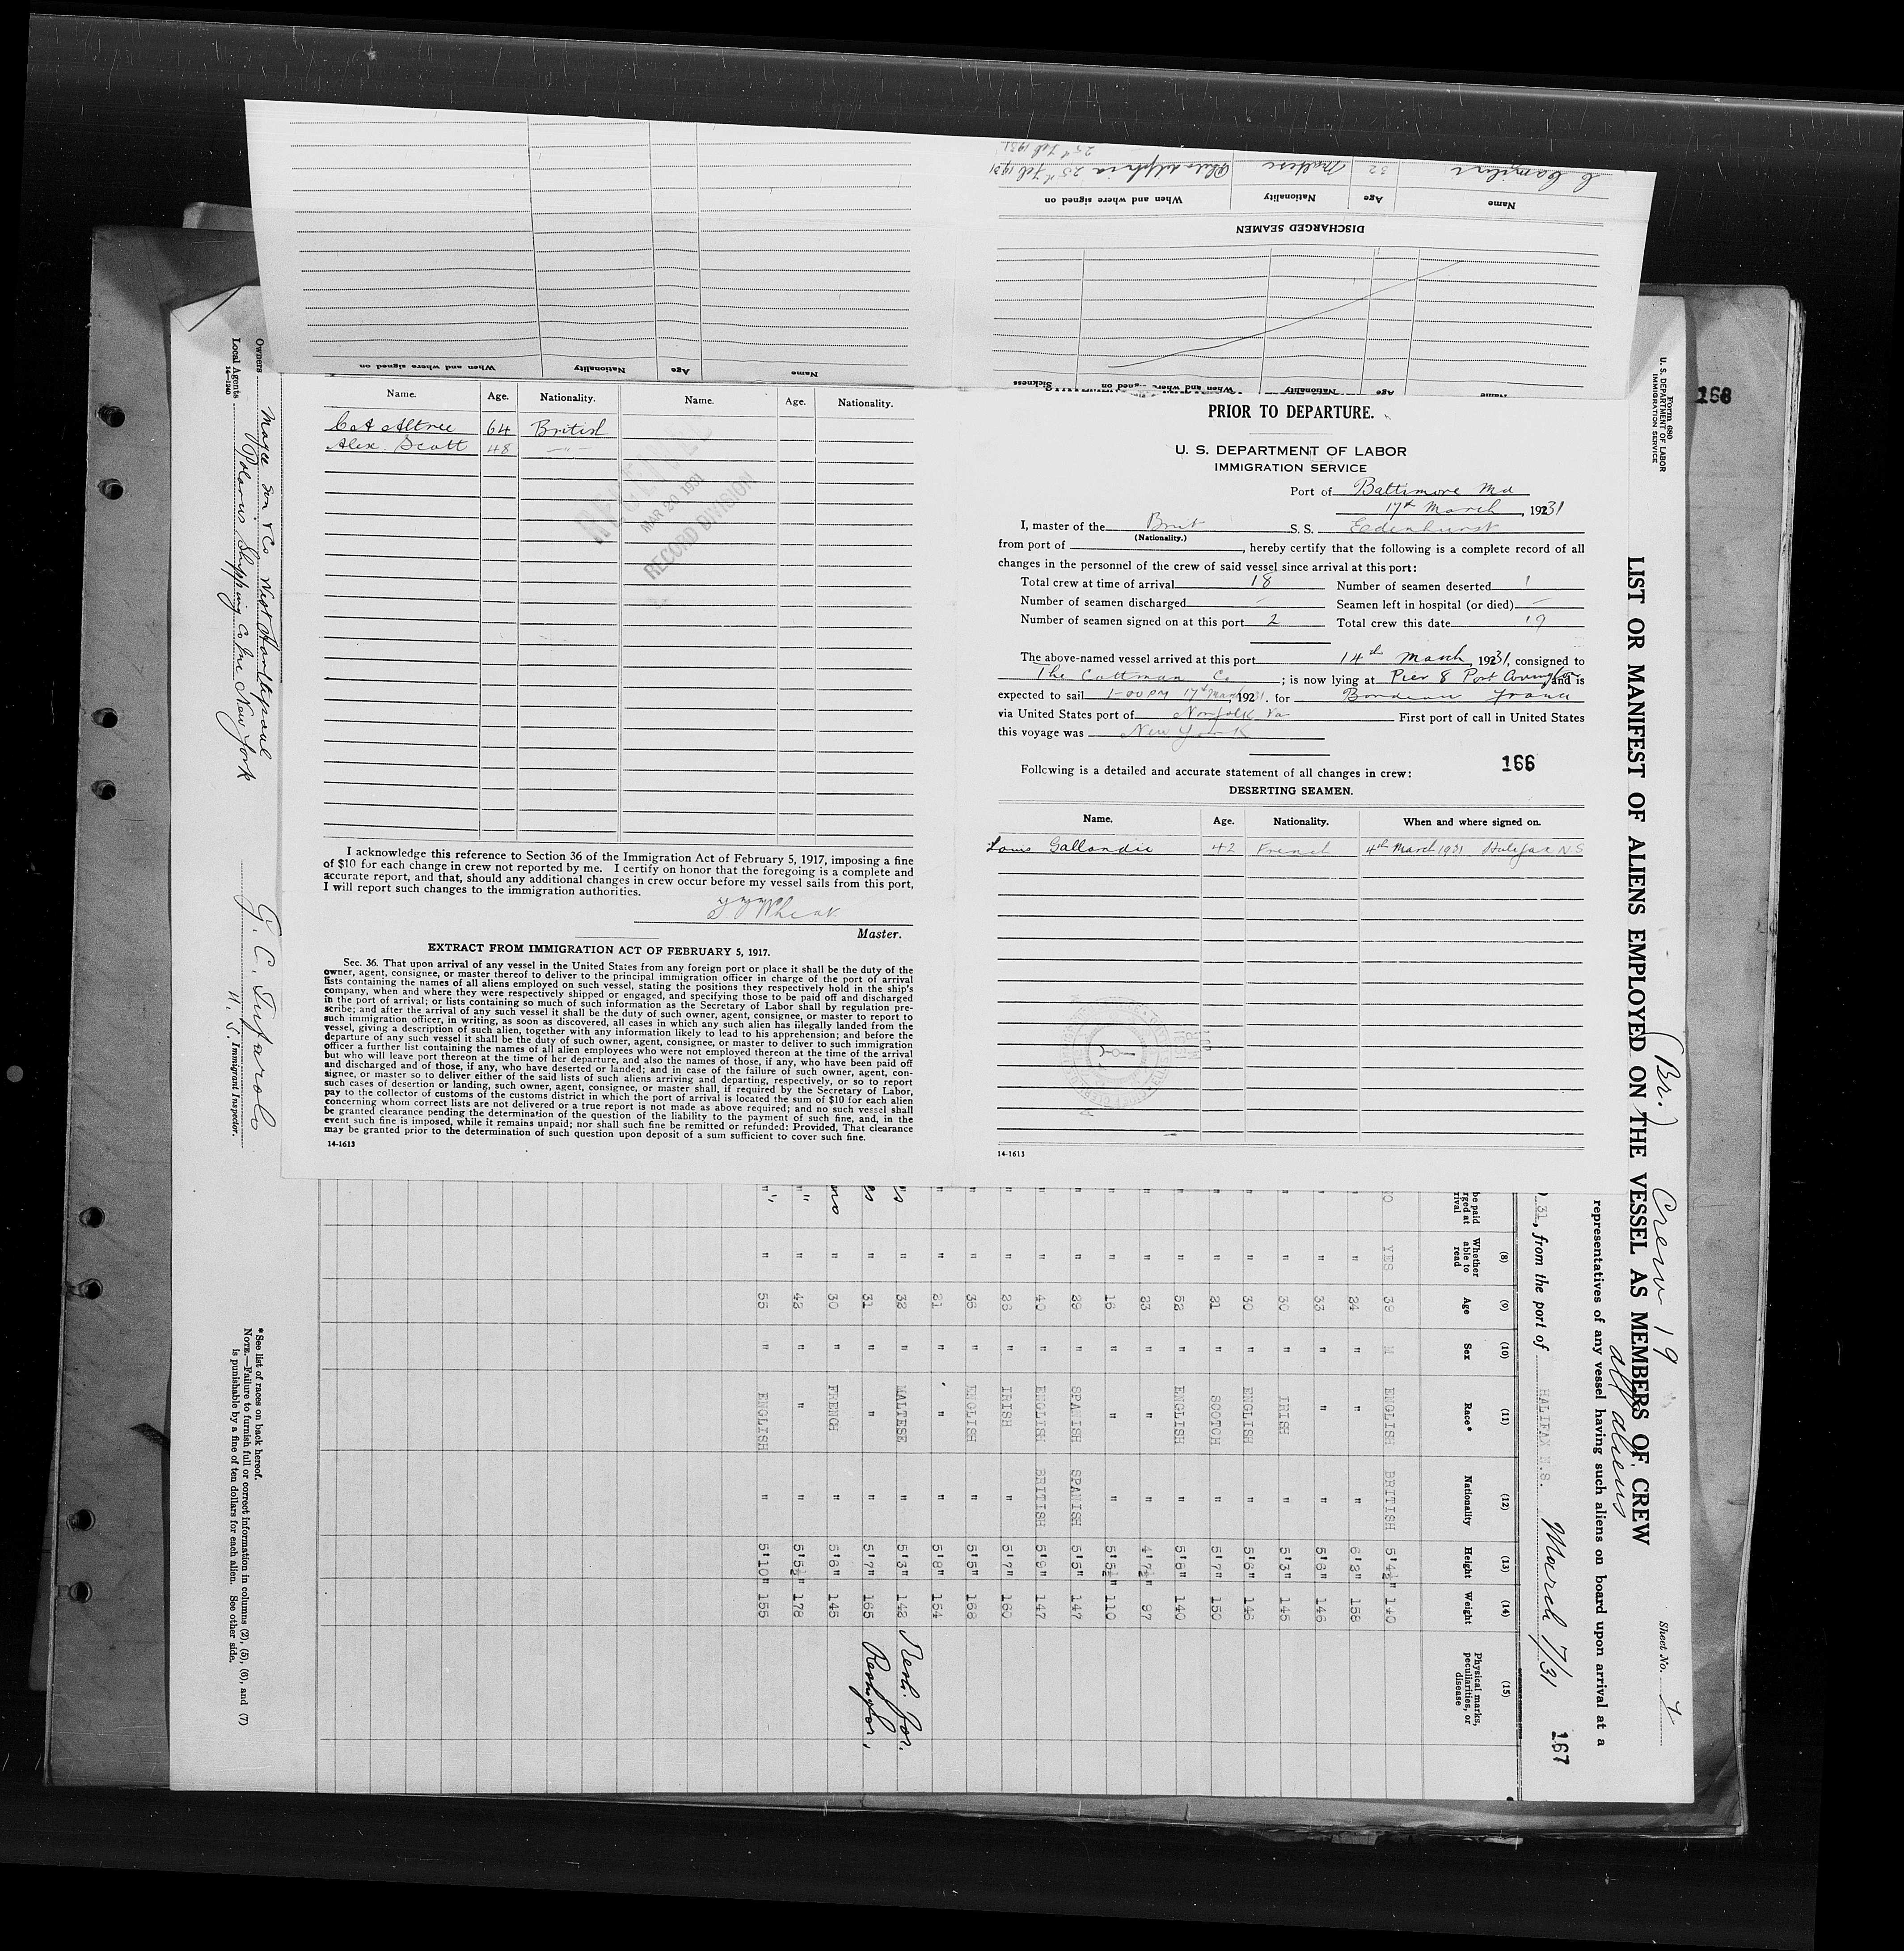 C Camilleri 32 Maltese Philadelphia 25th Feb 1931
25th Feb 1931
Name Age Nationality When and where signed on
DISCHARGED SEAMEN
Name Age Nationality When and where signed on
Name Age Nationality When and where signed on Sickness
Name. Age. Nationality. Name. Age. Nationality.
C A Altree 64 British
Alex. Scott 48 — " —
RECEIVED
MAR 20 1931
RECORD DIVISION
I acknowledge this reference to Section 36 of the Immigration Act of February 5, 1917, imposing a fine
of $10 for each change in crew not reported by me. I certify on honor that the foregoing is a complete and
accurate report, and that, should any additional changes in crew occur before my vessel sails from this port,
I will report such changes to the immigration authorities.
Master.
EXTRACT FROM IMMIGRATION ACT OF FEBRUARY 5, 1917.
Sec. 36. That upon arrival of any vessel in the United States from any foreign port or place it shall be the duty of the
owner, agent, consignee, or master thereof to deliver to the principal immigration officer in charge of the port of arrival
lists containing the names of all aliens employed on such vessel, stating the positions they respectively hold in the ship's
company, when and where they were respectively shipped or engaged, and specifying those to be paid off and discharged
in the port of arrival; or lists containing so much of such information as the Secretary of Labor shall by regulation pre-
scribe; and after the arrival of any such vessel it shall be the duty of such owner, agent, consignee, or master to report to
such immigration officer, in writing, as soon as discovered, all cases in which any such alien has illegally landed from the
vessel, giving a description of such alien, together with any information likely to lead to his apprehension; and before the
departure of any such vessel it shall be the duty of such owner, agent, consignee, or master to deliver to such immigration
officer a further list containing the names of all alien employees who were not employed thereon at the time of the arrival
but who will leave port thereon at the time of her departure, and also the names of those, if any, who have been paid off
and discharged and of those, if any, who have deserted or landed; and in case of the failure of such owner, agent, con-
signee, or master so to deliver either of the said lists of such aliens arriving and departing, respectively, or so to report
such cases of desertion or landing, such owner, agent, consignee, or master shall, if required by the Secretary of Labor,
pay to the collector of customs of the customs district in which the port of arrival is located the sum of $10 for each alien
concerning whom correct lists are not delivered or a true report is not made as above required; and no such vessel shall
be granted clearance pending the determination of the question of the liability to the payment of such fine, and, in the
event such fine is imposed, while it remains unpaid; nor shall such fine be remitted or refunded: Provided, That clearance
may be granted prior to the determination of such question upon deposit of a sum sufficient to cover such fine.
14-1613
PRIOR TO DEPARTURE.
U. S. DEPARTMENT OF LABOR
IMMIGRATION SERVICE
Port of Baltimore Md
17th March, 19231
I, master of the Brit S.S. Edenhurst
(Nationality.)
from port of , hereby certify that the following is a complete record of all
changes in the personnel of the crew of said vessel since arrival at this port:
Total crew at time of arrival 18 Number of seamen deserted 1
Number of seamen discharged — Seamen left in hospital (or died) —
Number of seamen signed on at this port 2 Total crew this date 19
The above-named vessel arrived at this port 14th March, 19231, consigned to
The Cottman Co ; is now lying at Pier 8 Port Covington and is
expected to sail 1-00 PM 17th March, 19231. for Bordeaux France
via United States port of Norfolk Va First port of call in United States
this voyage was New York
166
Following is a detailed and accurate statement of all changes in crew:
DESERTING SEAMEN.
Name. Age. Nationality. When and where signed on.
Louis Gallondie 42 French 4th March 1931 Halifax N.S
14-1613
166
Form 680
U. S. DEPARTMENT OF LABOR
IMMIGRATION SERVICE
(Br.) Crew 19
all aliens
Sheet No.
LIST OR MANIFEST OF ALIENS EMPLOYED ON THE VESSEL AS MEMBERS OF CREW
representatives of any vessel having such aliens on board upon arrival at a
31, from the port of HALIFAX N.S. March 7/31
167
be paid
rged at
rival
(8) Whether able to read
(9) Age
(10) Sex
(11) Race*
(12) Nationality
(13) Height
(14) Weight
(15) Physical marks, peculiarities, or disease
O YES 39 M ENGLISH BRITISH 5'4½" 140
" " 24 " " " 6'3" 158
" " 33 " " " 5'6" 146
" " 30 " IRISH " 5'3" 145
" " 30 " ENGLISH " 5'6" 146
" " 21 " SCOTCH " 5'7" 150
" " 52 " ENGLISH " 5'8" 140
" " 23 " " " 4'7½" 97
" " 16 " " " 5'5½" 110
" " 29 " SPANISH SPANISH 5'5" 147
" " 40 " ENGLISH BRITISH 5'9" 147
" " 26 " IRISH " 5'7" 160
" " 36 " ENGLISH " 5'5" 168
" " 21 " " " 5'8" 154
s " 32 " MALTESE " 5'3" 142
es " 31 " " " 5'7" 165
no " 30 " FRENCH " 5'6" 145
" " 42 " " " 5'5½" 178
" " 55 " ENGLISH " 5'10" 155
Owners Magee Son & Co West Hartlepool
Local Agents Polarus Shipping Co Inc New York
14—1240
G. C. Tufarolo
U. S. Immigrant Inspector.
*See list of races on back hereof.
NOTE.—Failure to furnish full or correct information in columns (2), (5), (6), and (7)
is punishable by a fine of ten dollars for each alien. See other side.